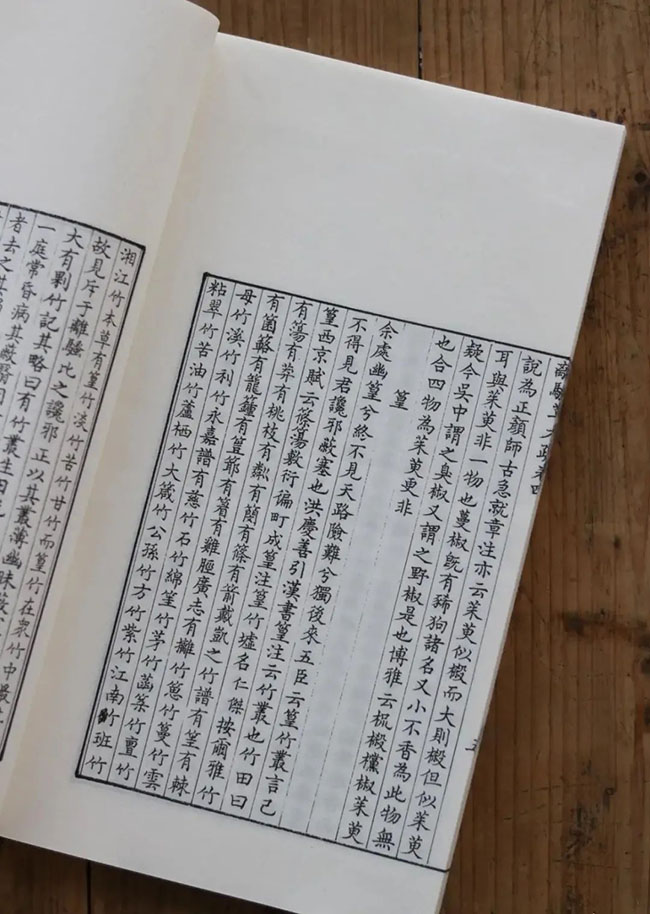 說為正顏師古急就章注亦云茱萸似樧而大則樧但似茱萸
耳與茱萸非一物也蔓椒旣有豨狗諸名又小不香為此物無
疑今吳中謂之臭椒又謂之野椒是也博雅云樧欓椒茱萸
也合四物為茱萸更非
篁
余處幽篁兮終不見天路險難兮獨後來五臣云篁竹叢言己
不得見君讒邪蔽塞也洪慶善引漢書篁注云竹叢也竹田曰
篁西京賦云篠簜敷衍徧町成篁注篁竹墟名仁傑按爾雅竹
有簜有莽有桃枝有粼有簡有篠有箭戴凱之竹譜有篁有棘
有箘簬有有有有雞脛廣志有竹竹竹雲
母竹溪竹利竹永嘉譜有慈竹石竹綿筀竹茅竹菡竹亶竹
粘翠竹苦油竹蘆栖竹大箴竹公孫竹方竹紫竹江南竹班竹
湘江竹本草有篁竹淡竹苦竹甘竹而篁竹在衆竹中最
故見斥于離騷比之讒邪正以其叢薄幽昧蔽
大有剿竹記其略曰有竹叢生
一庭常昏病其蔽翳
者去之其